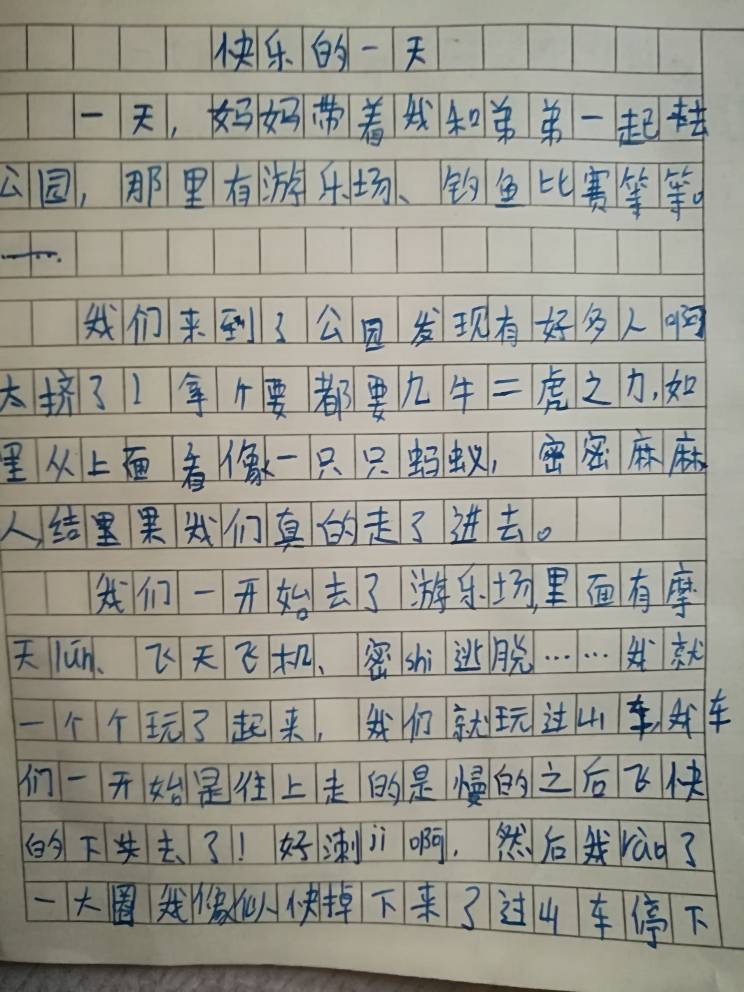 快乐的一天
一天，妈妈带着我和弟弟一起去
公园，那里有游乐场、钓鱼比赛等等。
我们来到了公园发现有好多人啊
太挤了！拿个要都要九牛二虎之力，如
里从上面看像一只只蚂蚁，密密麻麻
人，结果我们真的走了进去。
我们一开始。去了游乐场，里面有摩
天lún、飞天飞机、密shi逃脱……我就
一个个玩了起来，我们就玩过山车，我
们一开始是往上走的是慢的之后飞快
的下失去了！好溂ji啊，然后我rào了
一大圈我像似快掉下来了过山车停下